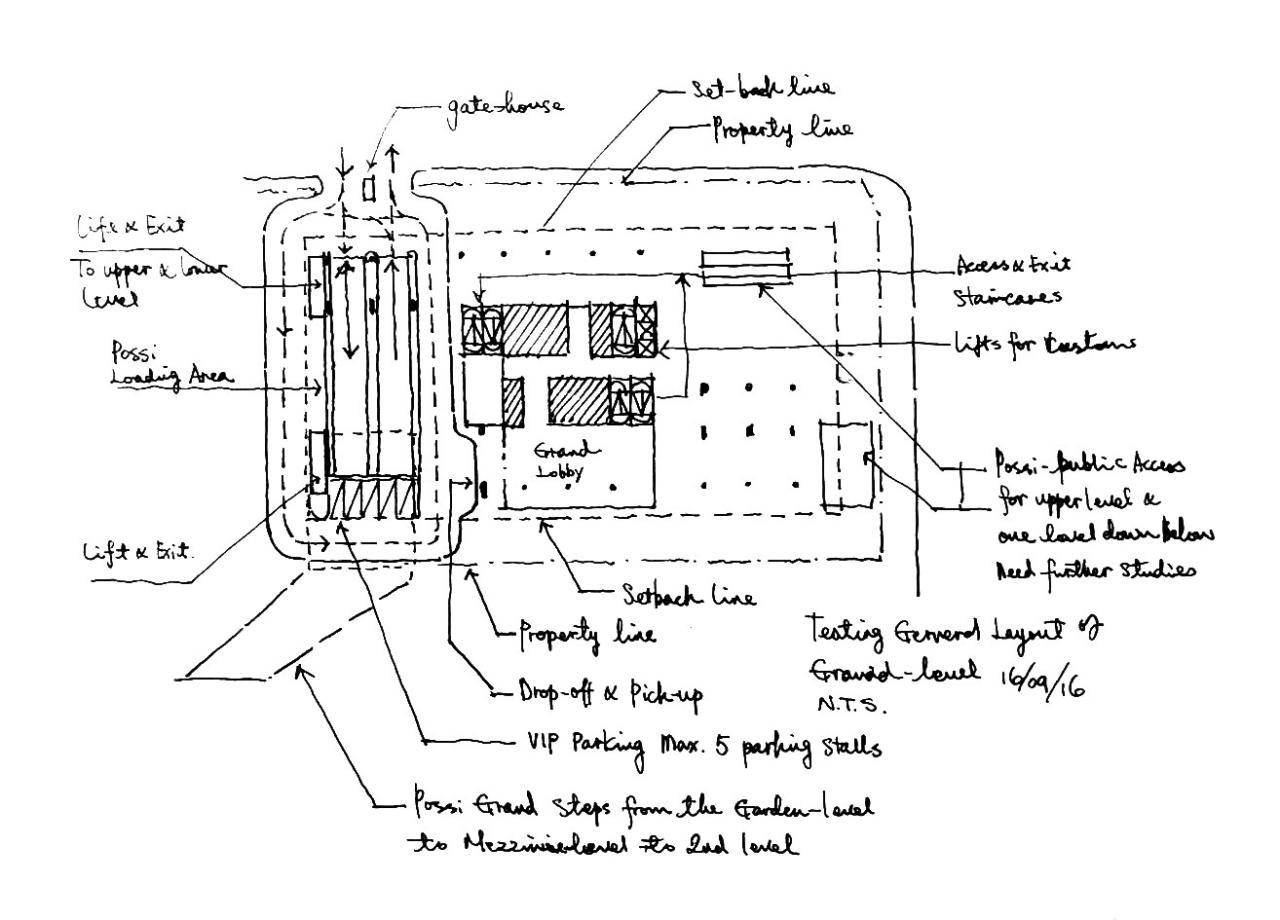 Set-back line
Property line
gate-house
Lift & Exit
To upper & lower
level
Possi
Loading Area
Lift & Exit.
Access & Exit
Staircases
Lifts for
Grand
Lobby
Possi-public Access
for upper level &
one level down below
Need further studies
Setback line
Property line
Drop-off & Pick-up
VIP Parking Max. 5 parking stalls
Possi Grand Steps from the Garden-level
to to 2nd level
Testing General Layout of
Ground-level 16/09/16
N.T.S.